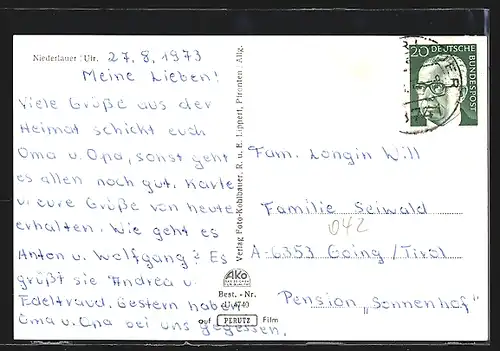 Niederlauer Ufr. 27.8.1973
Meine Lieben!
Viele Grüße aus der
Heimat schickt euch
Oma u. Opa, sonst geht
es allen noch gut. Karte
u. eure Grüße von heute
erhalten. Wie geht es
Anton u. Wolfgang? Es
grüßt sie Andrea u.
Edeltraud. Gestern haben
Oma u. Opa bei uns gegessen.
Verlag Foto-Kohlbauer, R. u. E. Lipperl, Pfronten / Allg.
AKO
Best. - Nr.
auf PERUTZ Film
20 DEUTSCHE
BUNDESPOST
Fam. Longin Will
Familie Seiwald
042
A-6353 Going/Tirol
Pension "Sonnenhof"